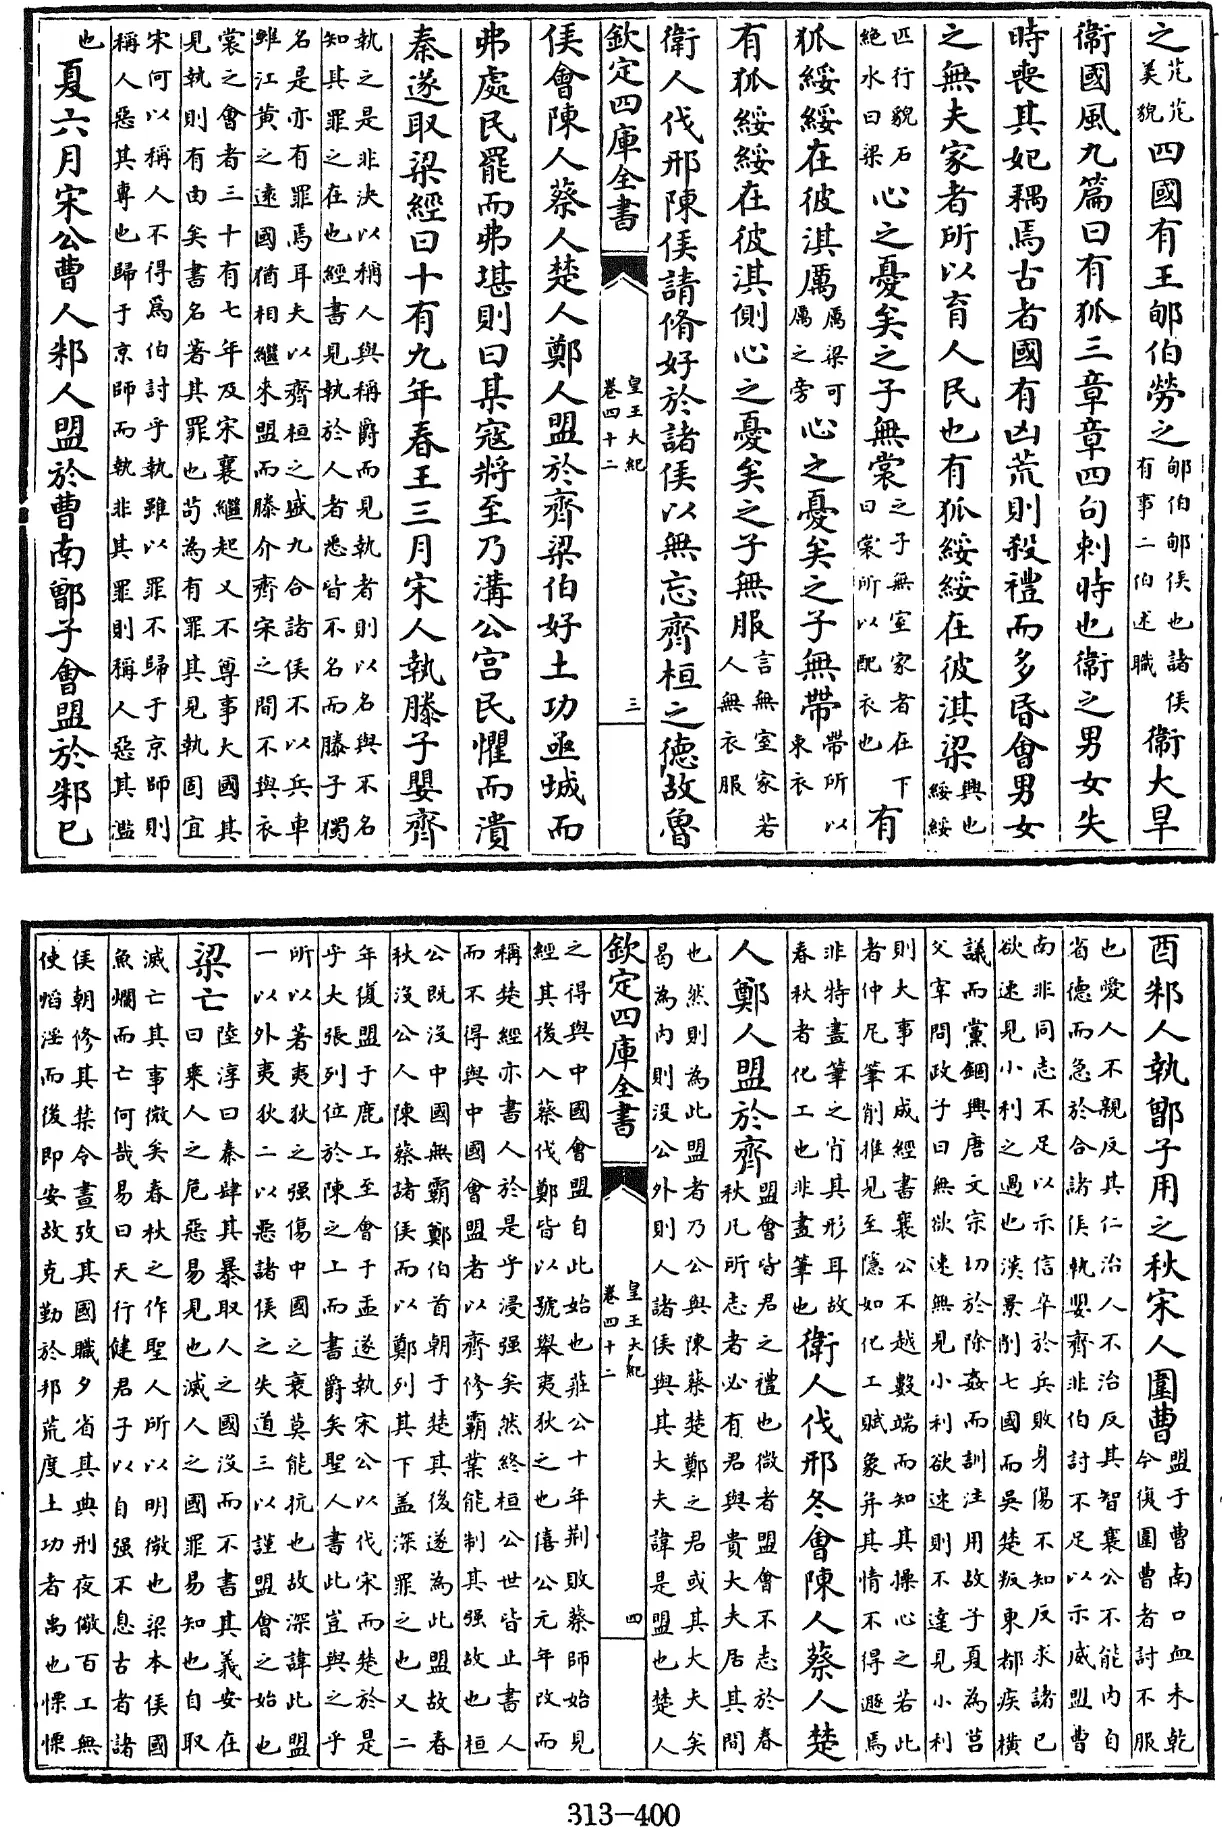 之芃芃美貌四國有王郇伯勞之郇伯郇侯也諸侯有事二伯述職衞大旱
衞國風九篇曰有狐三章章四句刺時也衞之男女失
時喪其妃耦焉古者國有凶荒則殺禮而多昏會男女
之無夫家者所以育人民也有狐綏綏在彼淇梁興也綏綏
匹行貌石絶水曰梁心之憂矣之子無裳之子無室家者在下曰裳所以配衣也有
狐綏綏在彼淇厲厲梁可厲之旁心之憂矣之子無帶帶所以束衣
有狐綏綏在彼淇側心之憂矣之子無服言無室家若人無衣服
衛人伐邢陳侯請脩好於諸侯以無忘齊桓之德故魯
欽定四庫全書
皇王大紀
卷四十二
三
侯會陳人蔡人楚人鄭人盟於齊梁伯好土功亟城而
弗處民罷而弗堪則曰某寇將至乃溝公宫民懼而潰
秦遂取梁經曰十有九年春王三月宋人執滕子嬰齊
執之是非決以稱人與稱爵而見執者則以名與不名
知其罪之在也經書見執於人者悉皆不名而滕子獨
名是亦有罪焉耳夫以齊桓之盛九合諸侯不以兵車
雖江黄之遠國猶相繼來盟而滕介齊宋之間不與衣
裳之會者三十有七年及宋襄繼起又不尊事大國其
見執則有由矣書名著其罪也苟為有罪其見執固宜
宋何以稱人不得爲伯討乎執雖以罪不歸于京師則
稱人惡其專也歸于京師而執非其罪則稱人惡其濫
也夏六月宋公曹人邾人盟於曹南鄫子會盟於邾已
酉邾人執鄫子用之秋宋人圍曹盟于曹南口血未乾今復圍曹者討不服
也愛人不親反其仁治人不治反其智襄公不能内自
省德而急於合諸侯執嬰齊非伯討不足以示威盟曹
南非同志不足以示信卒於兵敗身傷不知反求諸已
欲速見小利之過也漢景削七國而吳楚叛東都疾横
議而黨錮興唐文宗切於除姦而訓注用故子夏為莒
父宰問政子曰無欲速無見小利欲速則不達見小利
則大事不成經書襄公不越數端而知其操心之若此
者仲尼筆削推見至隱如化工賦象并其情不得遯焉
非特畫筆之肖其形耳故春秋者化工也非畫筆也衛人伐邢冬會陳人蔡人楚
人鄭人盟於齊盟會皆君之禮也微者盟會不志於春秋凡所志者必有君與貴大夫居其間
也然則為此盟者乃公與陳蔡楚鄭之君或其大夫矣
曷為内則没公外則人諸侯與其大夫諱是盟也楚人
欽定四庫全書
皇王大紀
卷四十二
四
之得與中國會盟自此始也莊公十年荆敗蔡師始見
經其後入蔡伐鄭皆以號舉夷狄之也僖公元年改而
稱楚經亦書人於是乎浸强矣然終桓公世皆止書人
而不得與中國會盟者以齊修霸業能制其强故也桓
公既没中國無霸鄭伯首朝于楚其後遂為此盟故春
秋没公人陳蔡諸侯而以鄭列其下盖深罪之也又二
年復盟于鹿上至會于盂遂執宋公以伐宋而楚於是
乎大張列位於陳之上而書爵矣聖人書此豈與之乎
所以著夷狄之强傷中國之衰莫能抗也故深諱此盟
一以外夷狄二以惡諸侯之失道三以謹盟會之始也
梁亡陸淳曰秦肆其暴取人之國没而不書其義安在曰乘人之危惡易見也滅人之國罪易知也自取
滅亡其事微矣春秋之作聖人所以明微也梁本侯國
魚爛而亡何哉易曰天行健君子以自强不息古者諸
侯朝修其禁令晝攷其國職夕省其典刑夜儆百工無
使慆淫而後即安故克勤於邦荒度土功者禹也慄慄
313-400